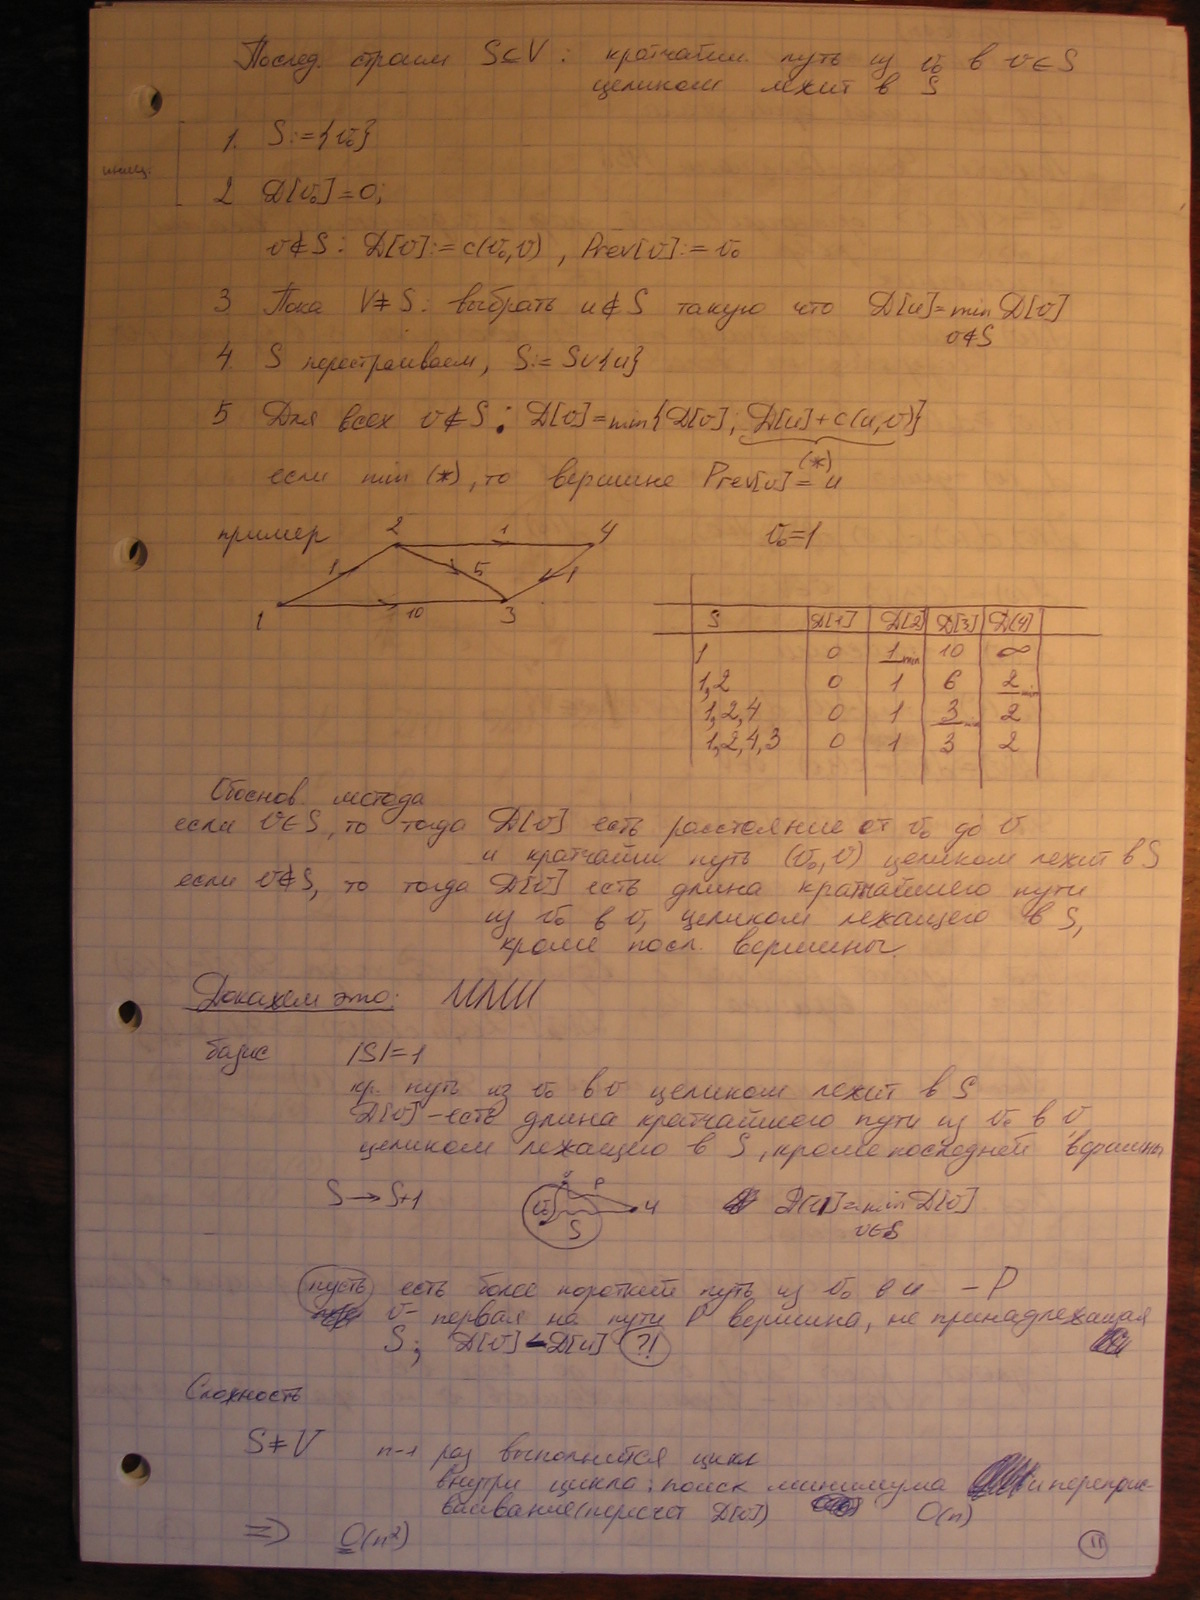 Послед. строим S⊆V : кратчайш. путь из v₀ в v∈S
целиком лежит в S
1. S:={v₀}
иниц.
2 D[v₀]=0;
v∉S : D[v]:=c(v₀,v) , Prev[v]:=v₀
3 Пока V≠S : выбрать u∉S такую что D[u]=min D[v]
v∉S
4. S перестраиваем, S:=S∪{u}
5 Для всех v∉S : D[v]=min{D[v]; D[u]+c(u,v)}
(*)
если min (*), то вершине Prev[v]=u
пример 2 1 4 v₀=1
1 5 1
1 10 3
S D[1] D[2] D[3] D[4]
1 0 1 min 10 ∞
1,2 0 1 6 2 min
1,2,4 0 1 3 min 2
1,2,4,3 0 1 3 2
Обоснов. метода
если v∈S, то тогда D[v] есть расстояние от v₀ до v
и кратчайш путь (v₀,v) целиком лежит в S
если v∉S, то тогда D[v] есть длина кратчайшего пути
из v₀ в v, целиком лежащего в S,
кроме посл. вершины
Докажем это: ММИ
базис |S|=1
кр. путь из v₀ в v целиком лежит в S
D[v] – есть длина кратчайшего пути из v₀ в v
целиком лежащего в S, кроме последней вершины
S → S+1 v₀ v P u S D[u]=min D[v]
v∈S
пусть есть более короткий путь из v₀ в u – P
v – первая на пути P вершина, не принадлежащая
S; D[v] < D[u] ?!
Сложность
S≠V n-1 раз выполнится цикл
внутри цикла : поиск минимума и переприс-
ваивание (пересчет D[v]) O(n)
⇒ O(n²)
11